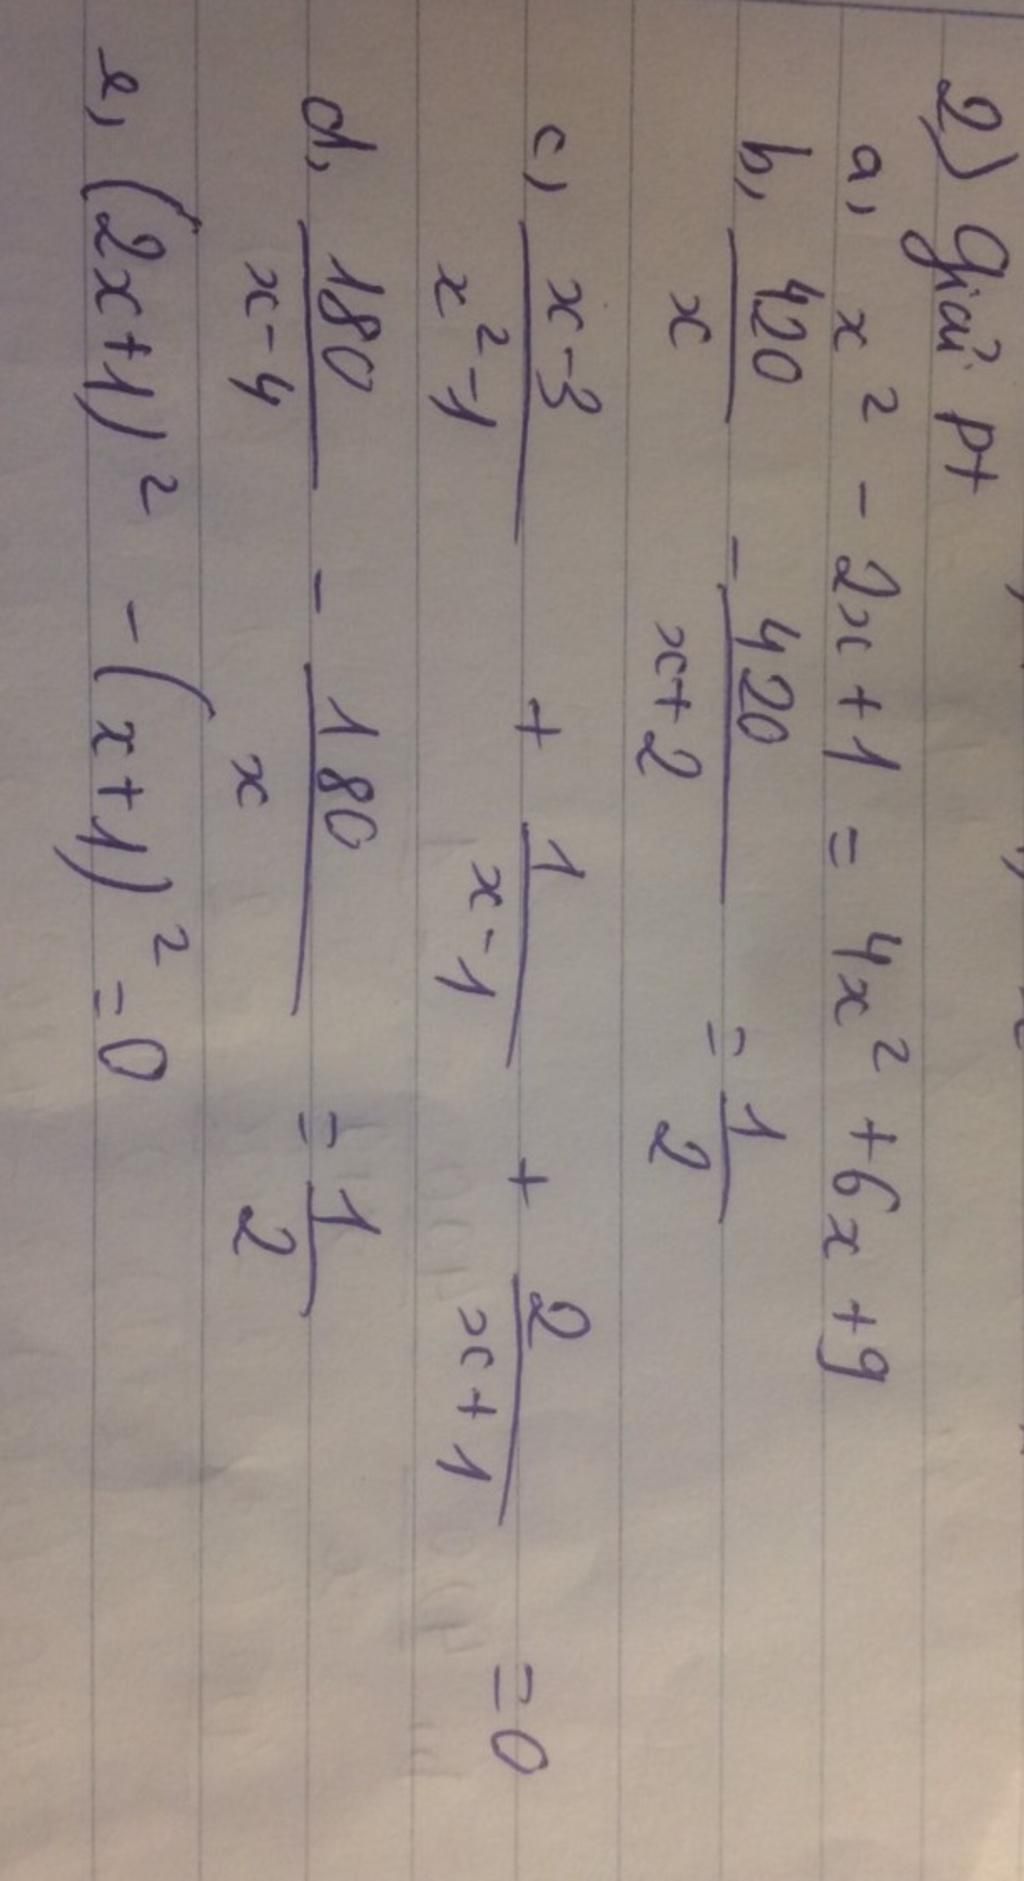 2) Giải pt
a, x² - 2x + 1 = 4x² + 6x + 9
b, 420/x - 420/(x+2) = 1/2
c, (x-3)/(x²-1) + 1/(x-1) + 2/(x+1) = 0
d, 180/(x-4) - 180/x = 1/2
e, (2x+1)² - (x+1)² = 0